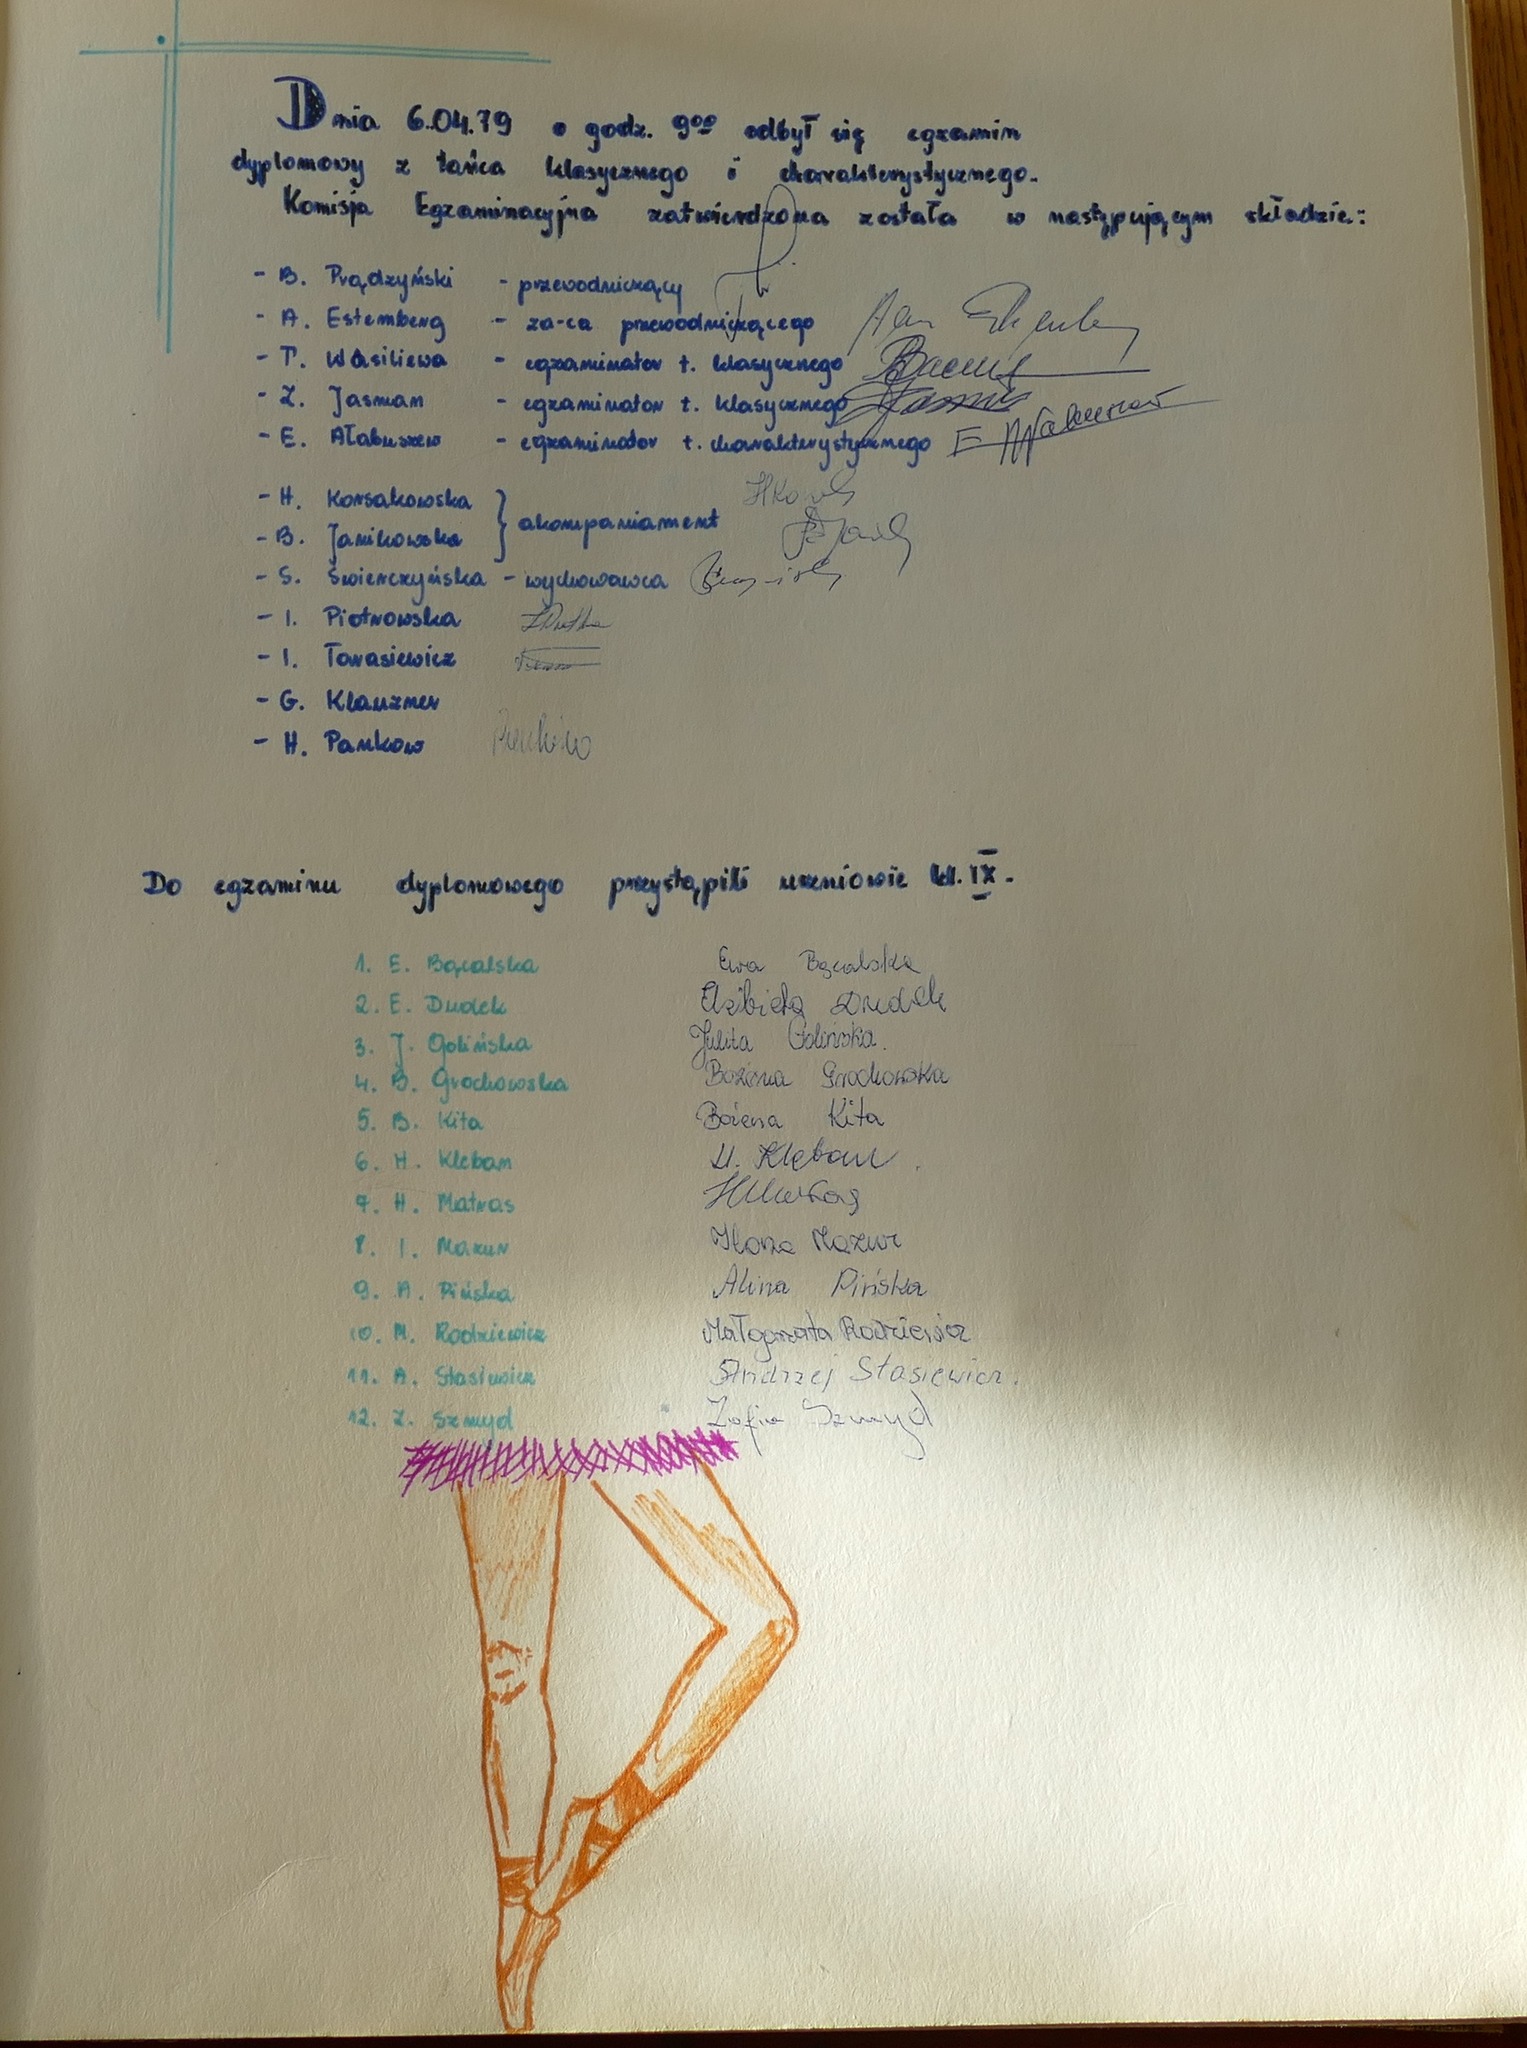 Dnia 6.04.79 o godz. 9⁰⁰ odbył się egzamin
dyplomowy z tańca klasycznego i charakterystycznego.
Komisja Egzaminacyjna zatwierdzona została w następującym składzie:
- B. Prądzyński - przewodniczący
- A. Estemberg - za-ca przewodniczącego
- T. Wasiliewa - egzaminator t. klasycznego
- Z. Jasman - egzaminator t. klasycznego
- E. Ałabuszew - egzaminator t. charakterystycznego
- H. Korsakowska
} akompaniament
- B. Janikowska
- S. Świerczyńska - wychowawca
- I. Piotrowska
- I. Tarasiewicz
- G. Klauzner
- H. Pankow
Do egzaminu dyplomowego przystąpili uczniowie kl. IX.
1. E. Bącalska Ewa Bącalska
2. E. Dudek Elżbieta Dudek
3. J. Golińska Julita Golińska.
4. B. Grochowska Bożena Grochowska
5. B. Kita Bożena Kita
6. H. Kleban H. Kleban
7. H. Matras HMatras
8. I. Mazur Ilona Mazur
9. A. Pińska Alina Pińska
10. M. Rodziewicz Małgorzata Rodziewicz
11. A. Stasiewicz Andrzej Stasiewicz.
12. Z. Szmyd Zofia Szmyd